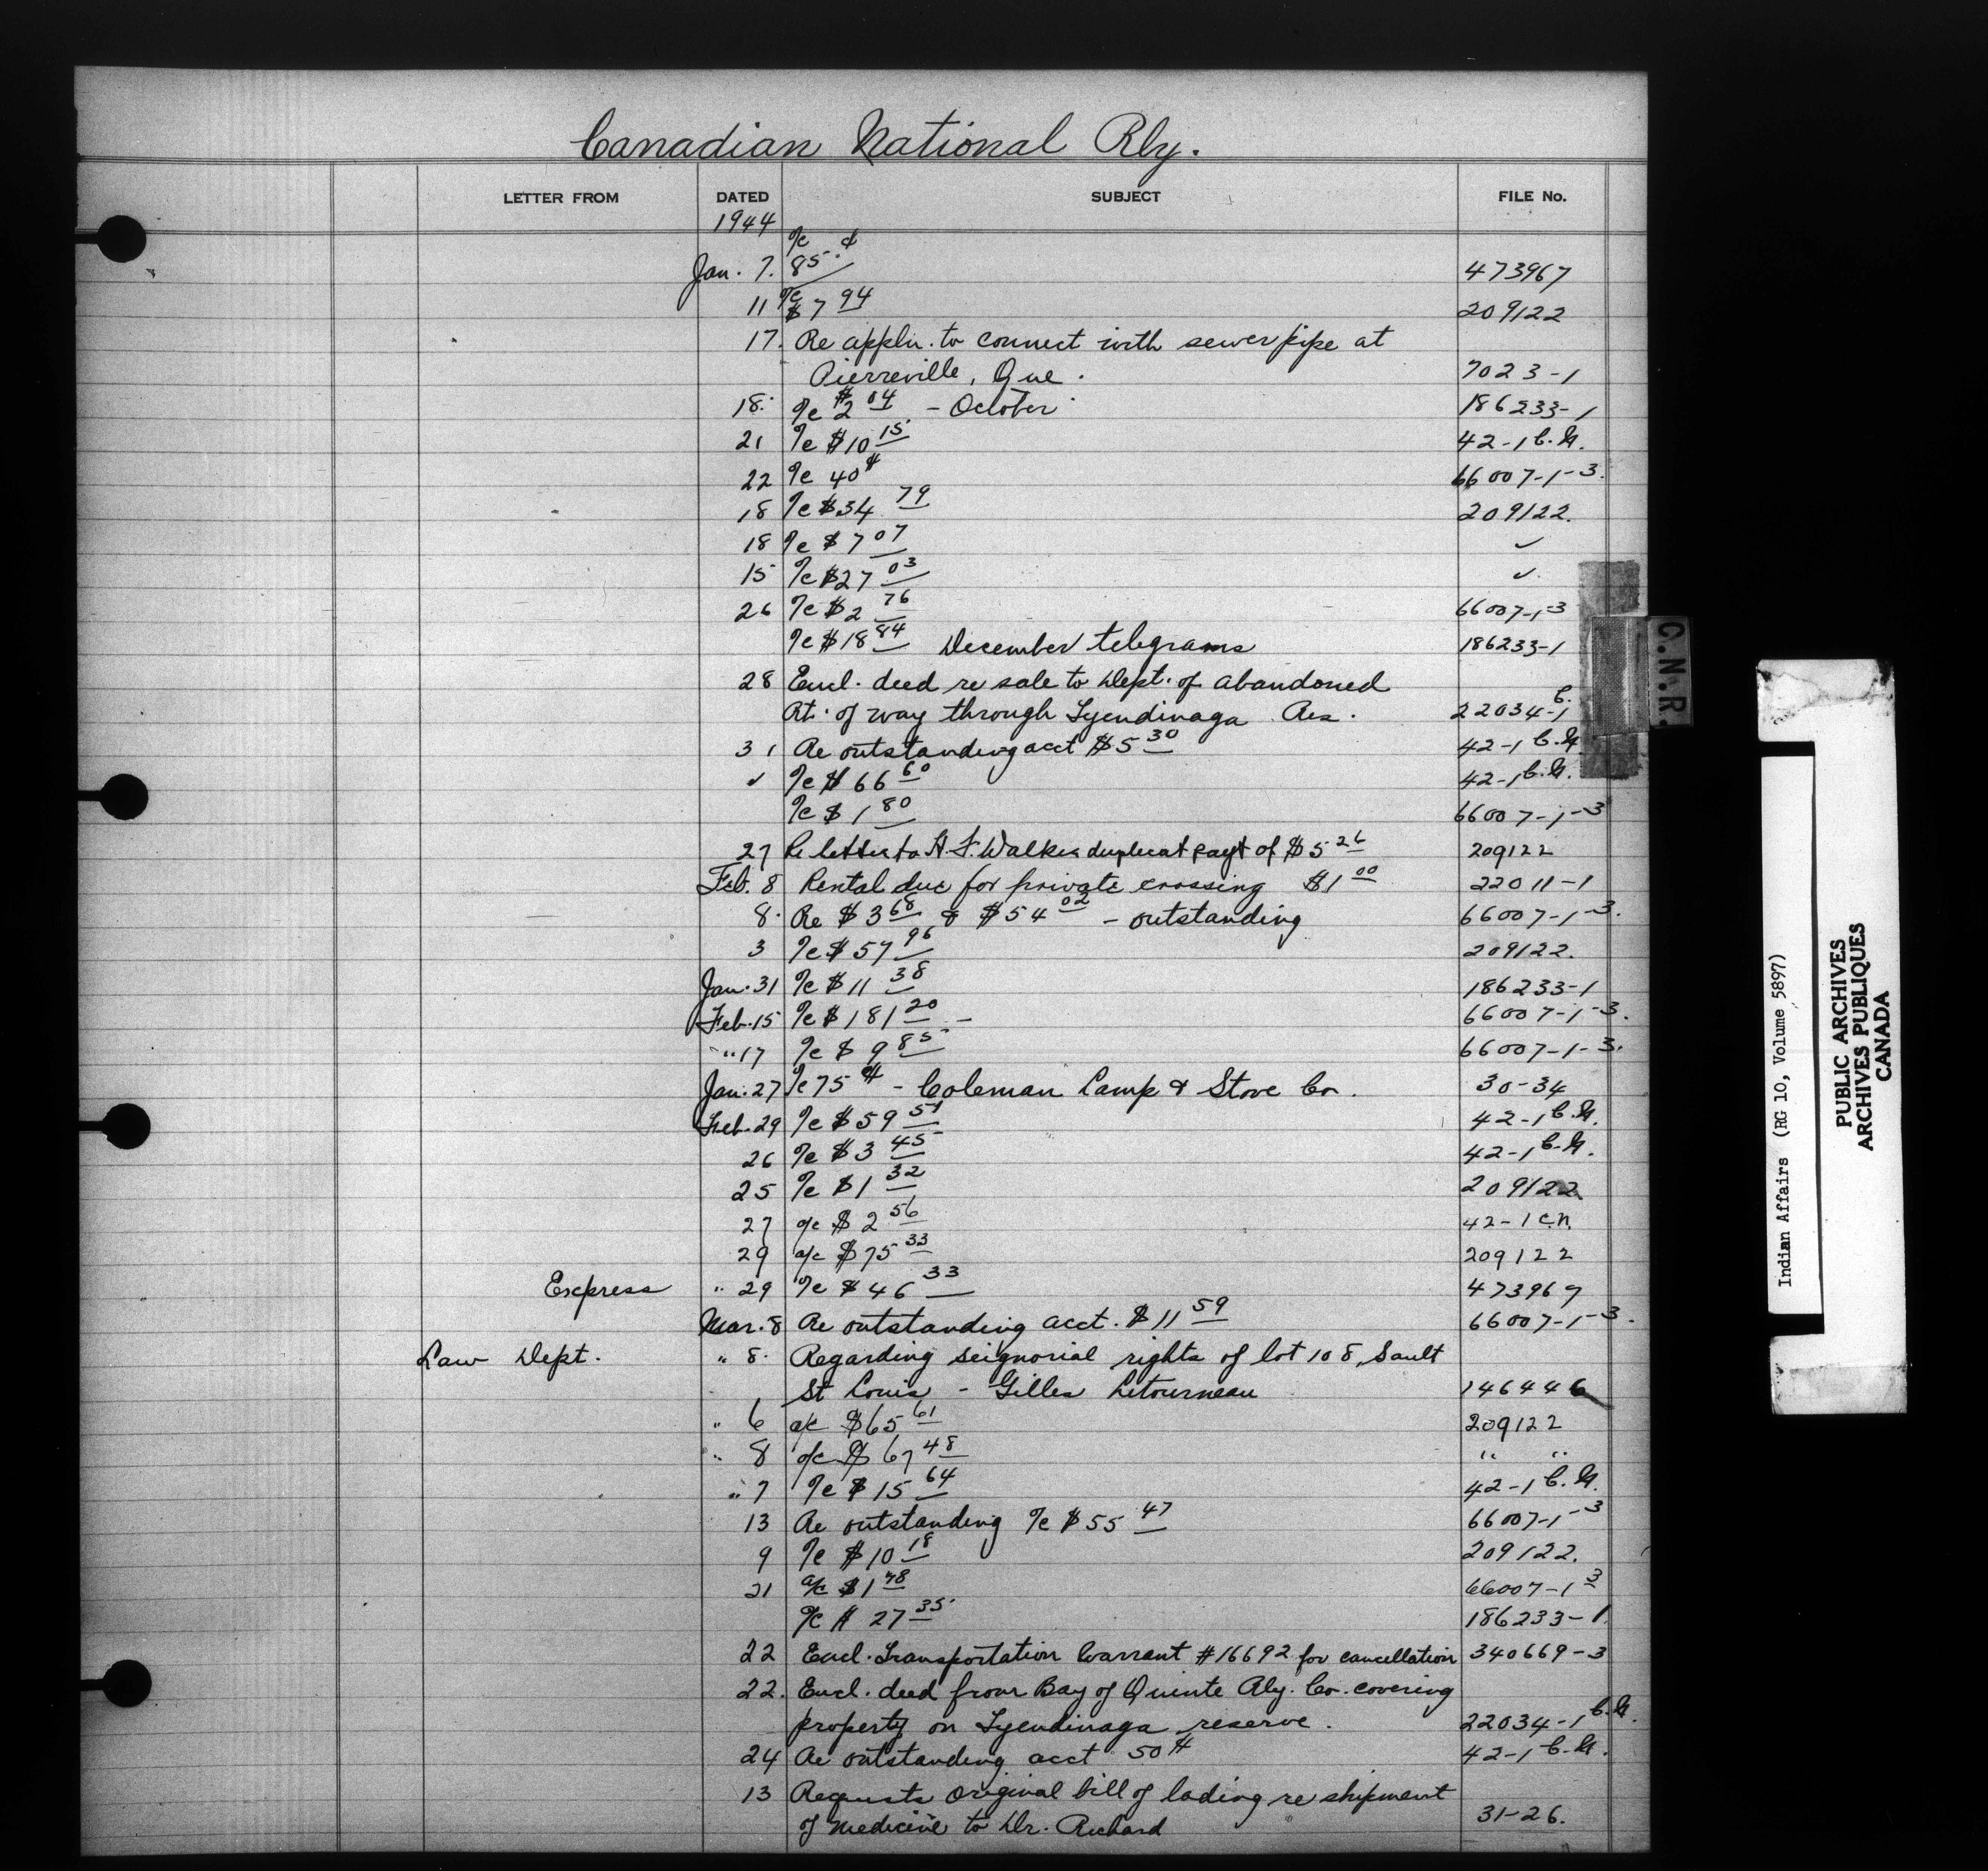 Canadian National Rly.
LETTER FROM DATED SUBJECT FILE No.
1944
Jan. 7. a/c 85 ¢ 473967
11 a/c $7 94 209122
17. Re appln. to connect with sewer pipe at
Pierreville, Que. 7023-1
18. a/c $2 04 - October 186233-1
21 a/c $10 15 42-1 C.N.
22 a/c 40¢ 66007-1-3.
18 a/c $34 79 209122.
18 a/c $7 07 ✓
15 a/c $27 03 ✓
26 a/c $2 76 66007-1-3
a/c $18 84 December telegrams 186233-1
28 Encl. deed re sale to Dept. of abandoned
Rt. of way through Tyendinaga Res. 22034-1 C.
31 Re outstanding acct $5 30 42-1 C.N.
✓ a/c $66 60 42-1 C.N.
a/c $1 80 66007-1-3
27 Re letter to H.F. Walker duplicat payt of $5 26 209122
Feb. 8 Rental due for private crossing $1 00 22011-1
8. Re $3 68 & $54 02 - outstanding 66007-1-3.
3 a/c $57 96 209122.
Jan. 31 a/c $11 38 186233-1
Feb. 15 a/c $181 20 - 66007-1-3.
" 17 a/c $9 85 66007-1-3.
Jan. 27 a/c 75¢ - Coleman Lamp & Stove Co. 30-34
Feb. 29 a/c $59 51 42-1 C.N.
26 a/c $3 45 42-1 C.N.
25 a/c $1 32 209122
27 a/c $2 56 42-1 C.N.
29 a/c $75 33 209122
Express " 29 a/c $46 33 473967
Mar. 8 Re outstanding acct. $11 59 66007-1-3.
Law Dept. " 8. Regarding seignorial rights of lot 108, Sault
St Louis - Gilles Letourneau 146446
" 6 a/c $65 61 209122
" 8 a/c $67 48 " "
" 7 a/c $15 64 42-1 C.N.
13 Re outstanding a/c $55 47 66007-1-3
9 a/c $10 18 209122.
21 a/c $1 78 66007-1 3
a/c # 27 35 186233-1
22 Encl. Transportation Warrant #16692 for cancellation 340669-3
22. Encl. deed from Bay of Quinte Rly. Co. covering
property on Tyendinaga reserve. 22034-1 C.N.
24 Re outstanding acct 50¢ 42-1 C.N.
13 Requests original bill of lading re shipment
of medicine to Dr. Richard 31-26.
C.N.R.
Indian Affairs (RG 10, Volume 5897)
PUBLIC ARCHIVES
ARCHIVES PUBLIQUES
CANADA